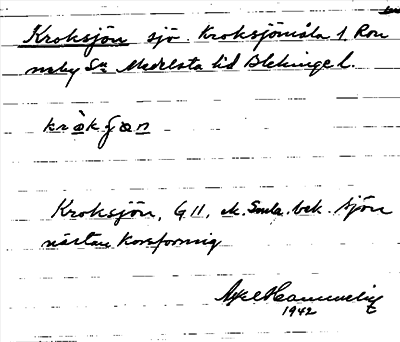 Kroksjön sjö. Kroksjömåla 1, Ron
neby Sn Medelsta hd Blekinge l.
kròkʃɷn
Kroksjön, G 11, ek. Smla. bek. sjön
nästan korsformig
Axel
1942